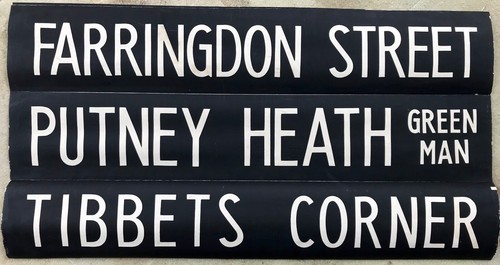 FARRINGDON STREET
PUTNEY HEATH GREEN MAN
TIBBETS CORNER